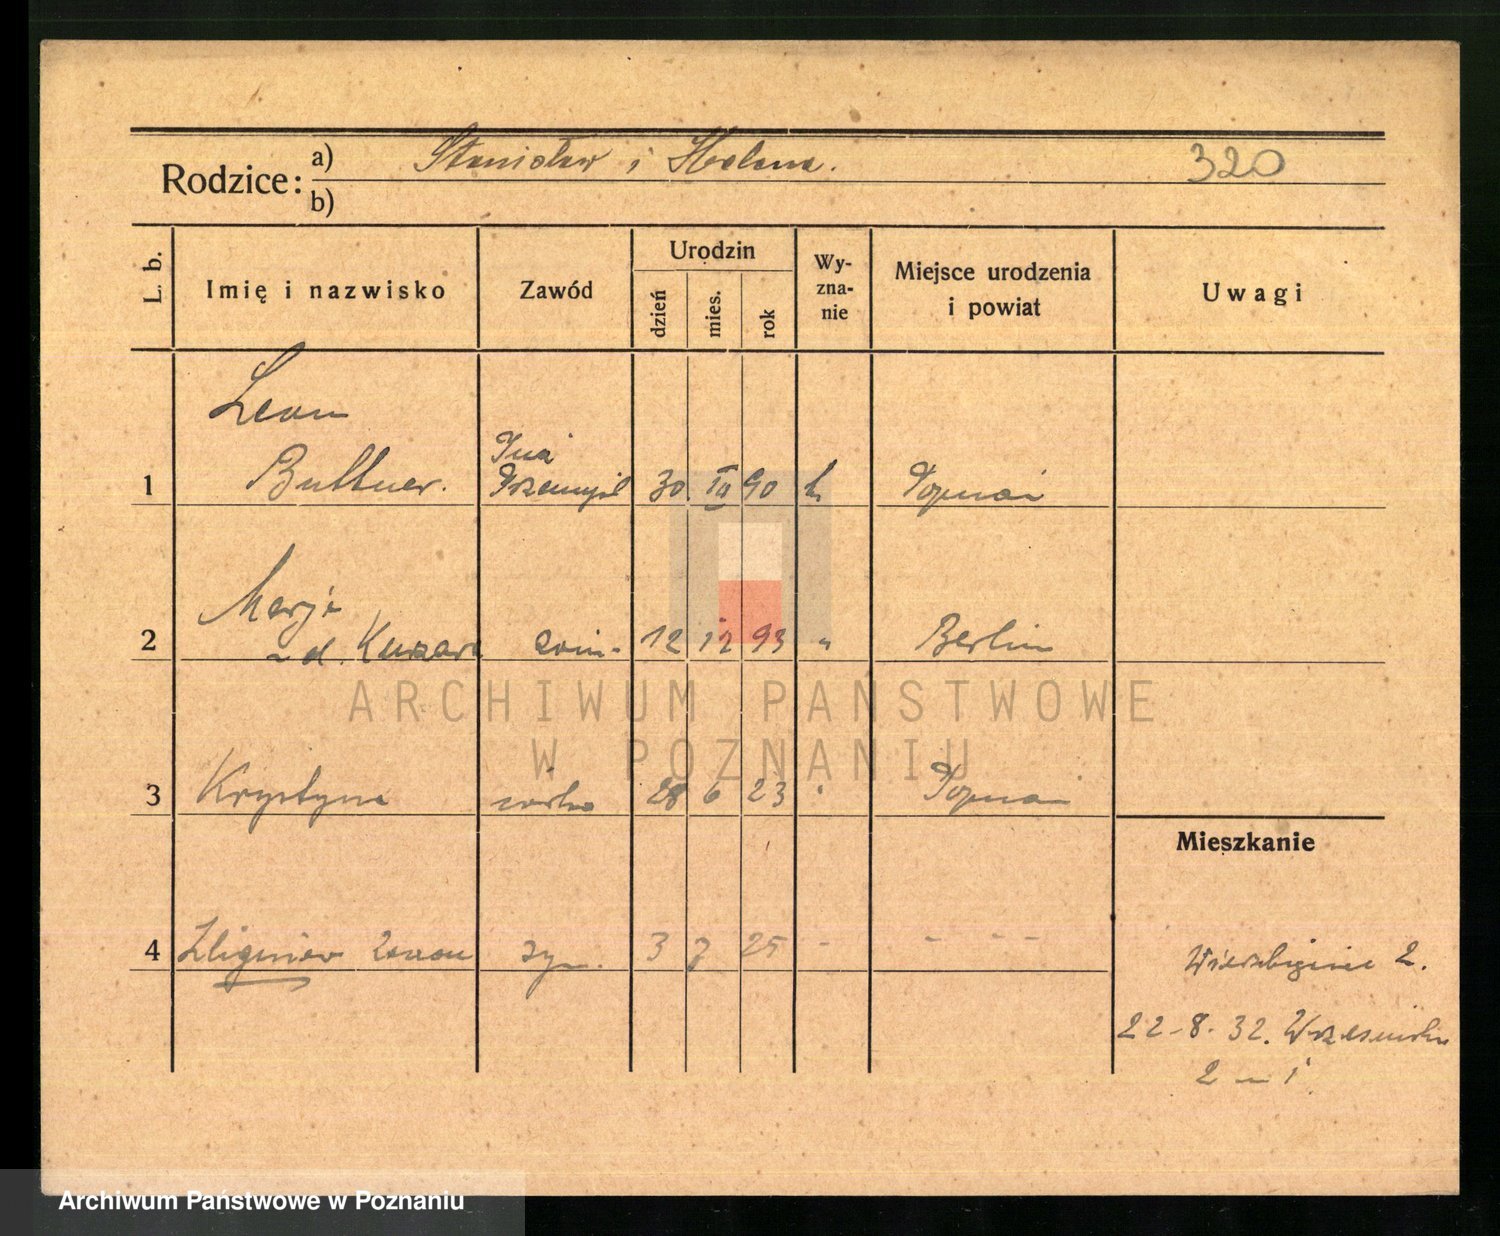 Rodzice:
a) Stanisław i Helena. 320
b)
L. b.
Imię i nazwisko
Zawód
Urodzin
dzień
mies.
rok
Wy-
zna-
nie
Miejsce urodzenia
i powiat
Uwagi
Leon
1 Buttner. 30. III 90 k. Poznań
Przemysł
Marja
2 d. 12 12 93 " Berlin
3 Krystyna córka 28 6 23 " Poznań
Mieszkanie
4 Zbigniew Zenon syn. 3 7 25 - - - -
Wierzbięcice 2.
22-8. 32. Wrzesińska
2 m 1
ARCHIWUM PAŃSTWOWE
W POZNANIU
Archiwum Państwowe w Poznaniu